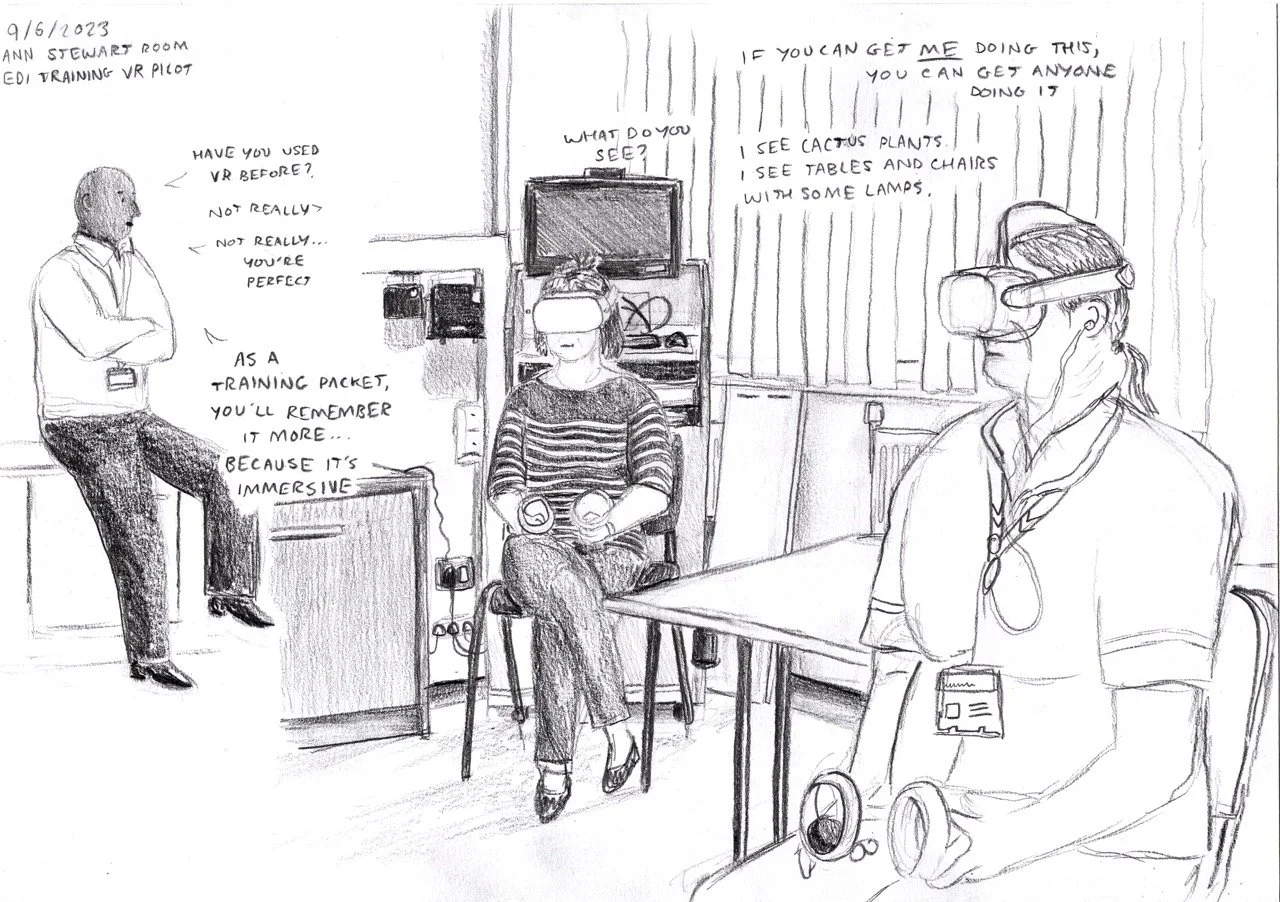 9/6/2023
ANN STEWART ROOM
EDI TRAINING VR PILOT
IF YOU CAN GET ME DOING THIS,
YOU CAN GET ANYONE
DOING IT
HAVE YOU USED
VR BEFORE?
NOT REALLY
NOT REALLY...
YOU'RE
PERFECT
WHAT DO YOU
SEE?
I SEE CACTUS PLANTS.
I SEE TABLES AND CHAIRS
WITH SOME LAMPS.
AS A
TRAINING PACKET,
YOU'LL REMEMBER
IT MORE...
BECAUSE IT'S
IMMERSIVE